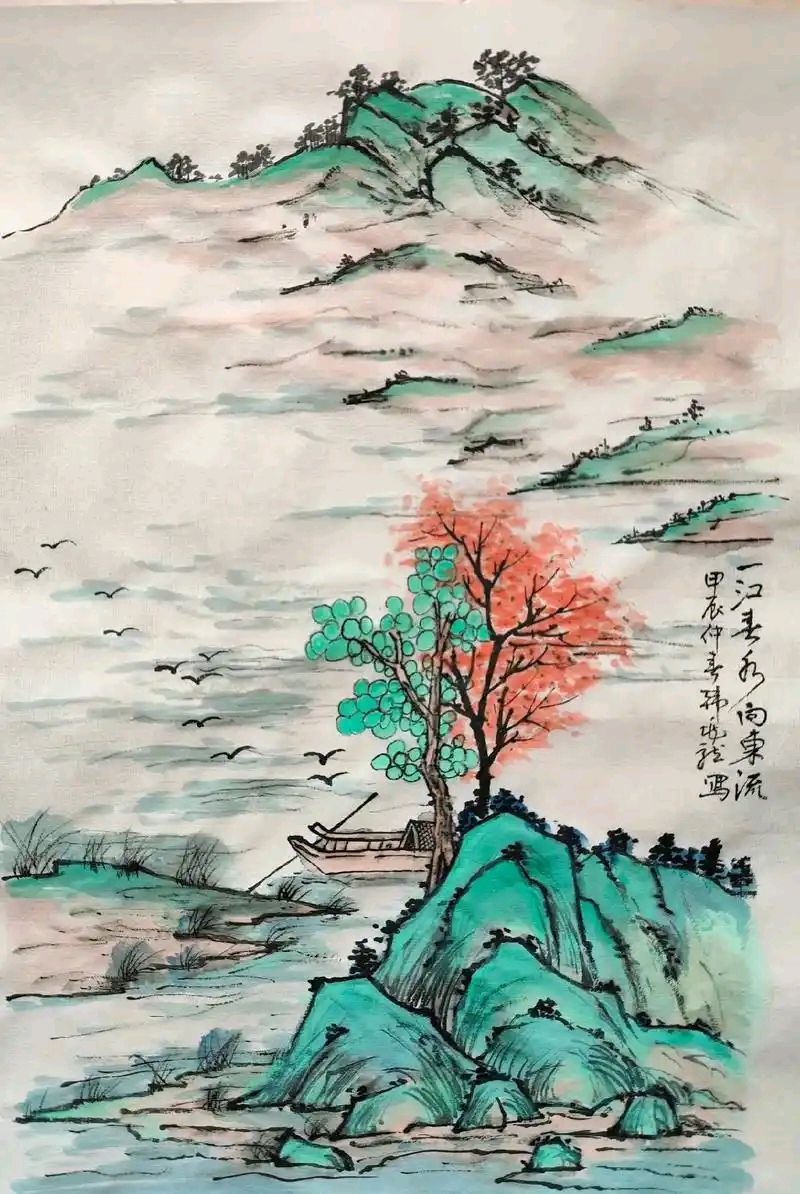 一江春水向东流
甲辰仲春韩
写